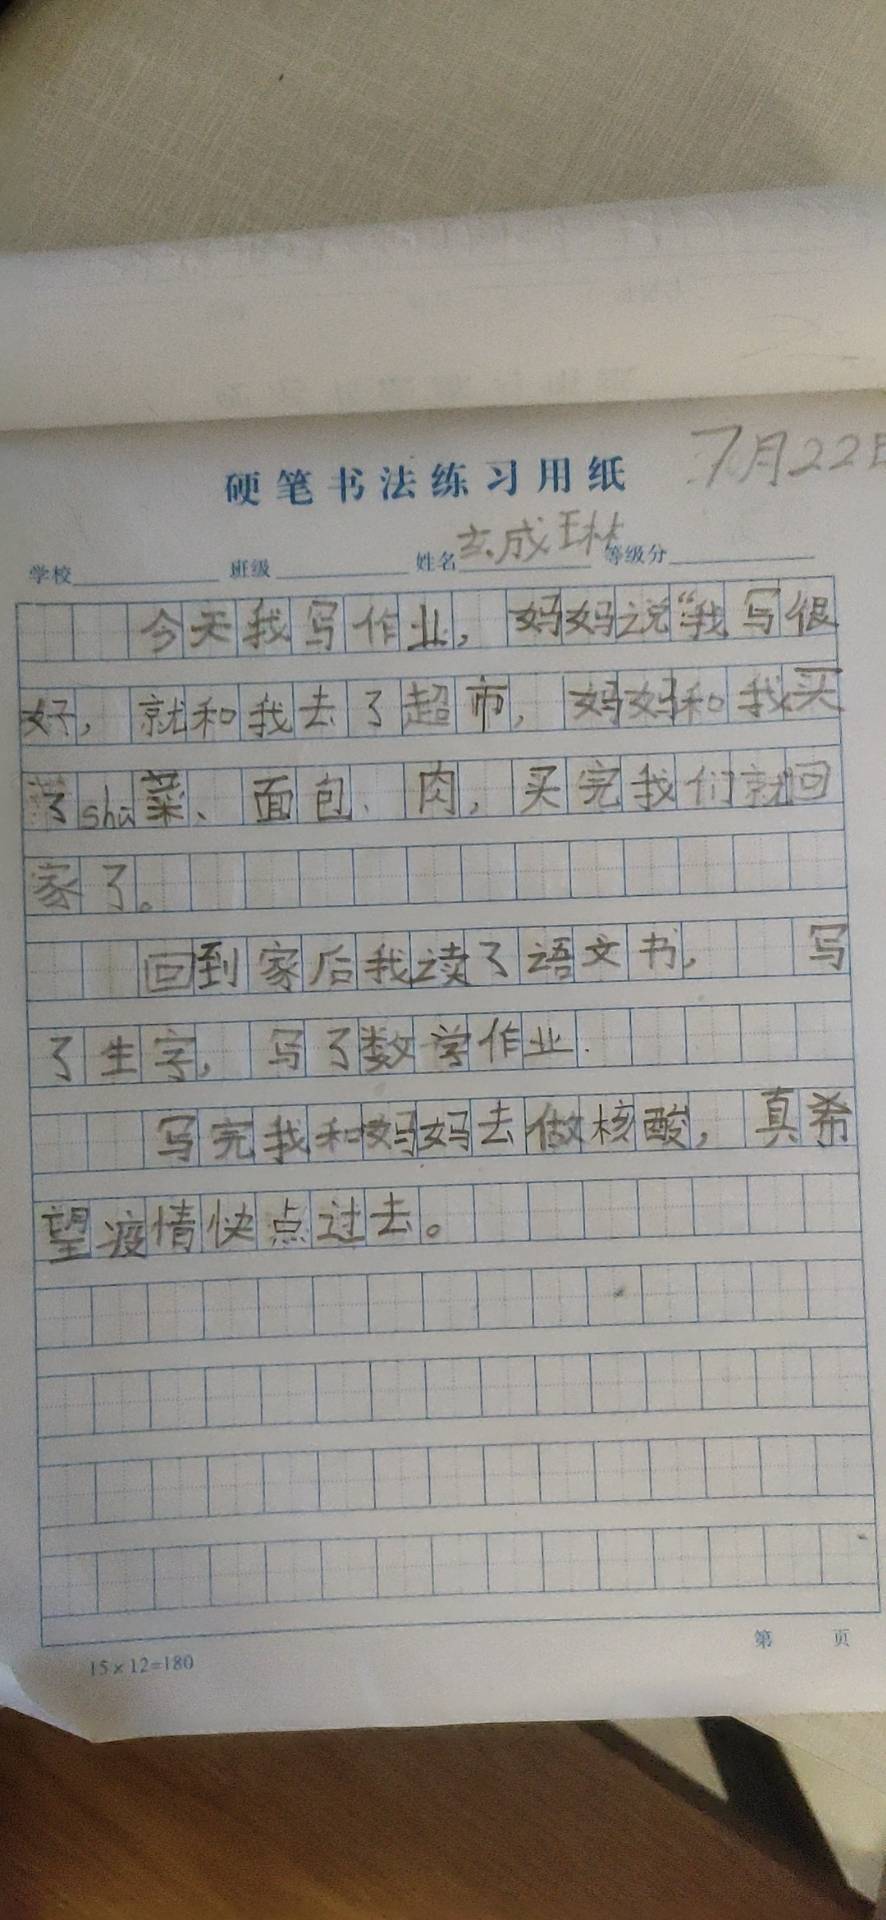 7月22日
硬笔书法练习用纸
学校 班级 姓名玄成琳 等级分
今天我写作业，妈妈说“我写很
好，就和我去了超市，妈妈和我买
了shū菜、面包、肉，买完我们就回
家了。
回到家后我读了语文书，写
了生字，写了数学作业.
写完我和妈妈去做核酸，真希
望疫情快点过去。
15×12=180
第 页